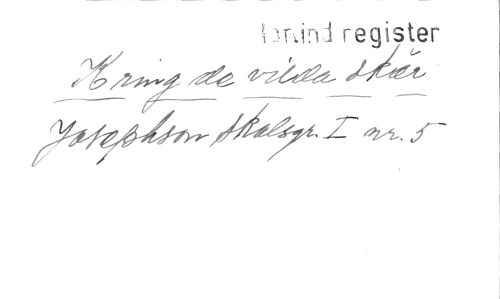 register
Kring de vilda skär
Josephson Skalsgr. I nr. 5